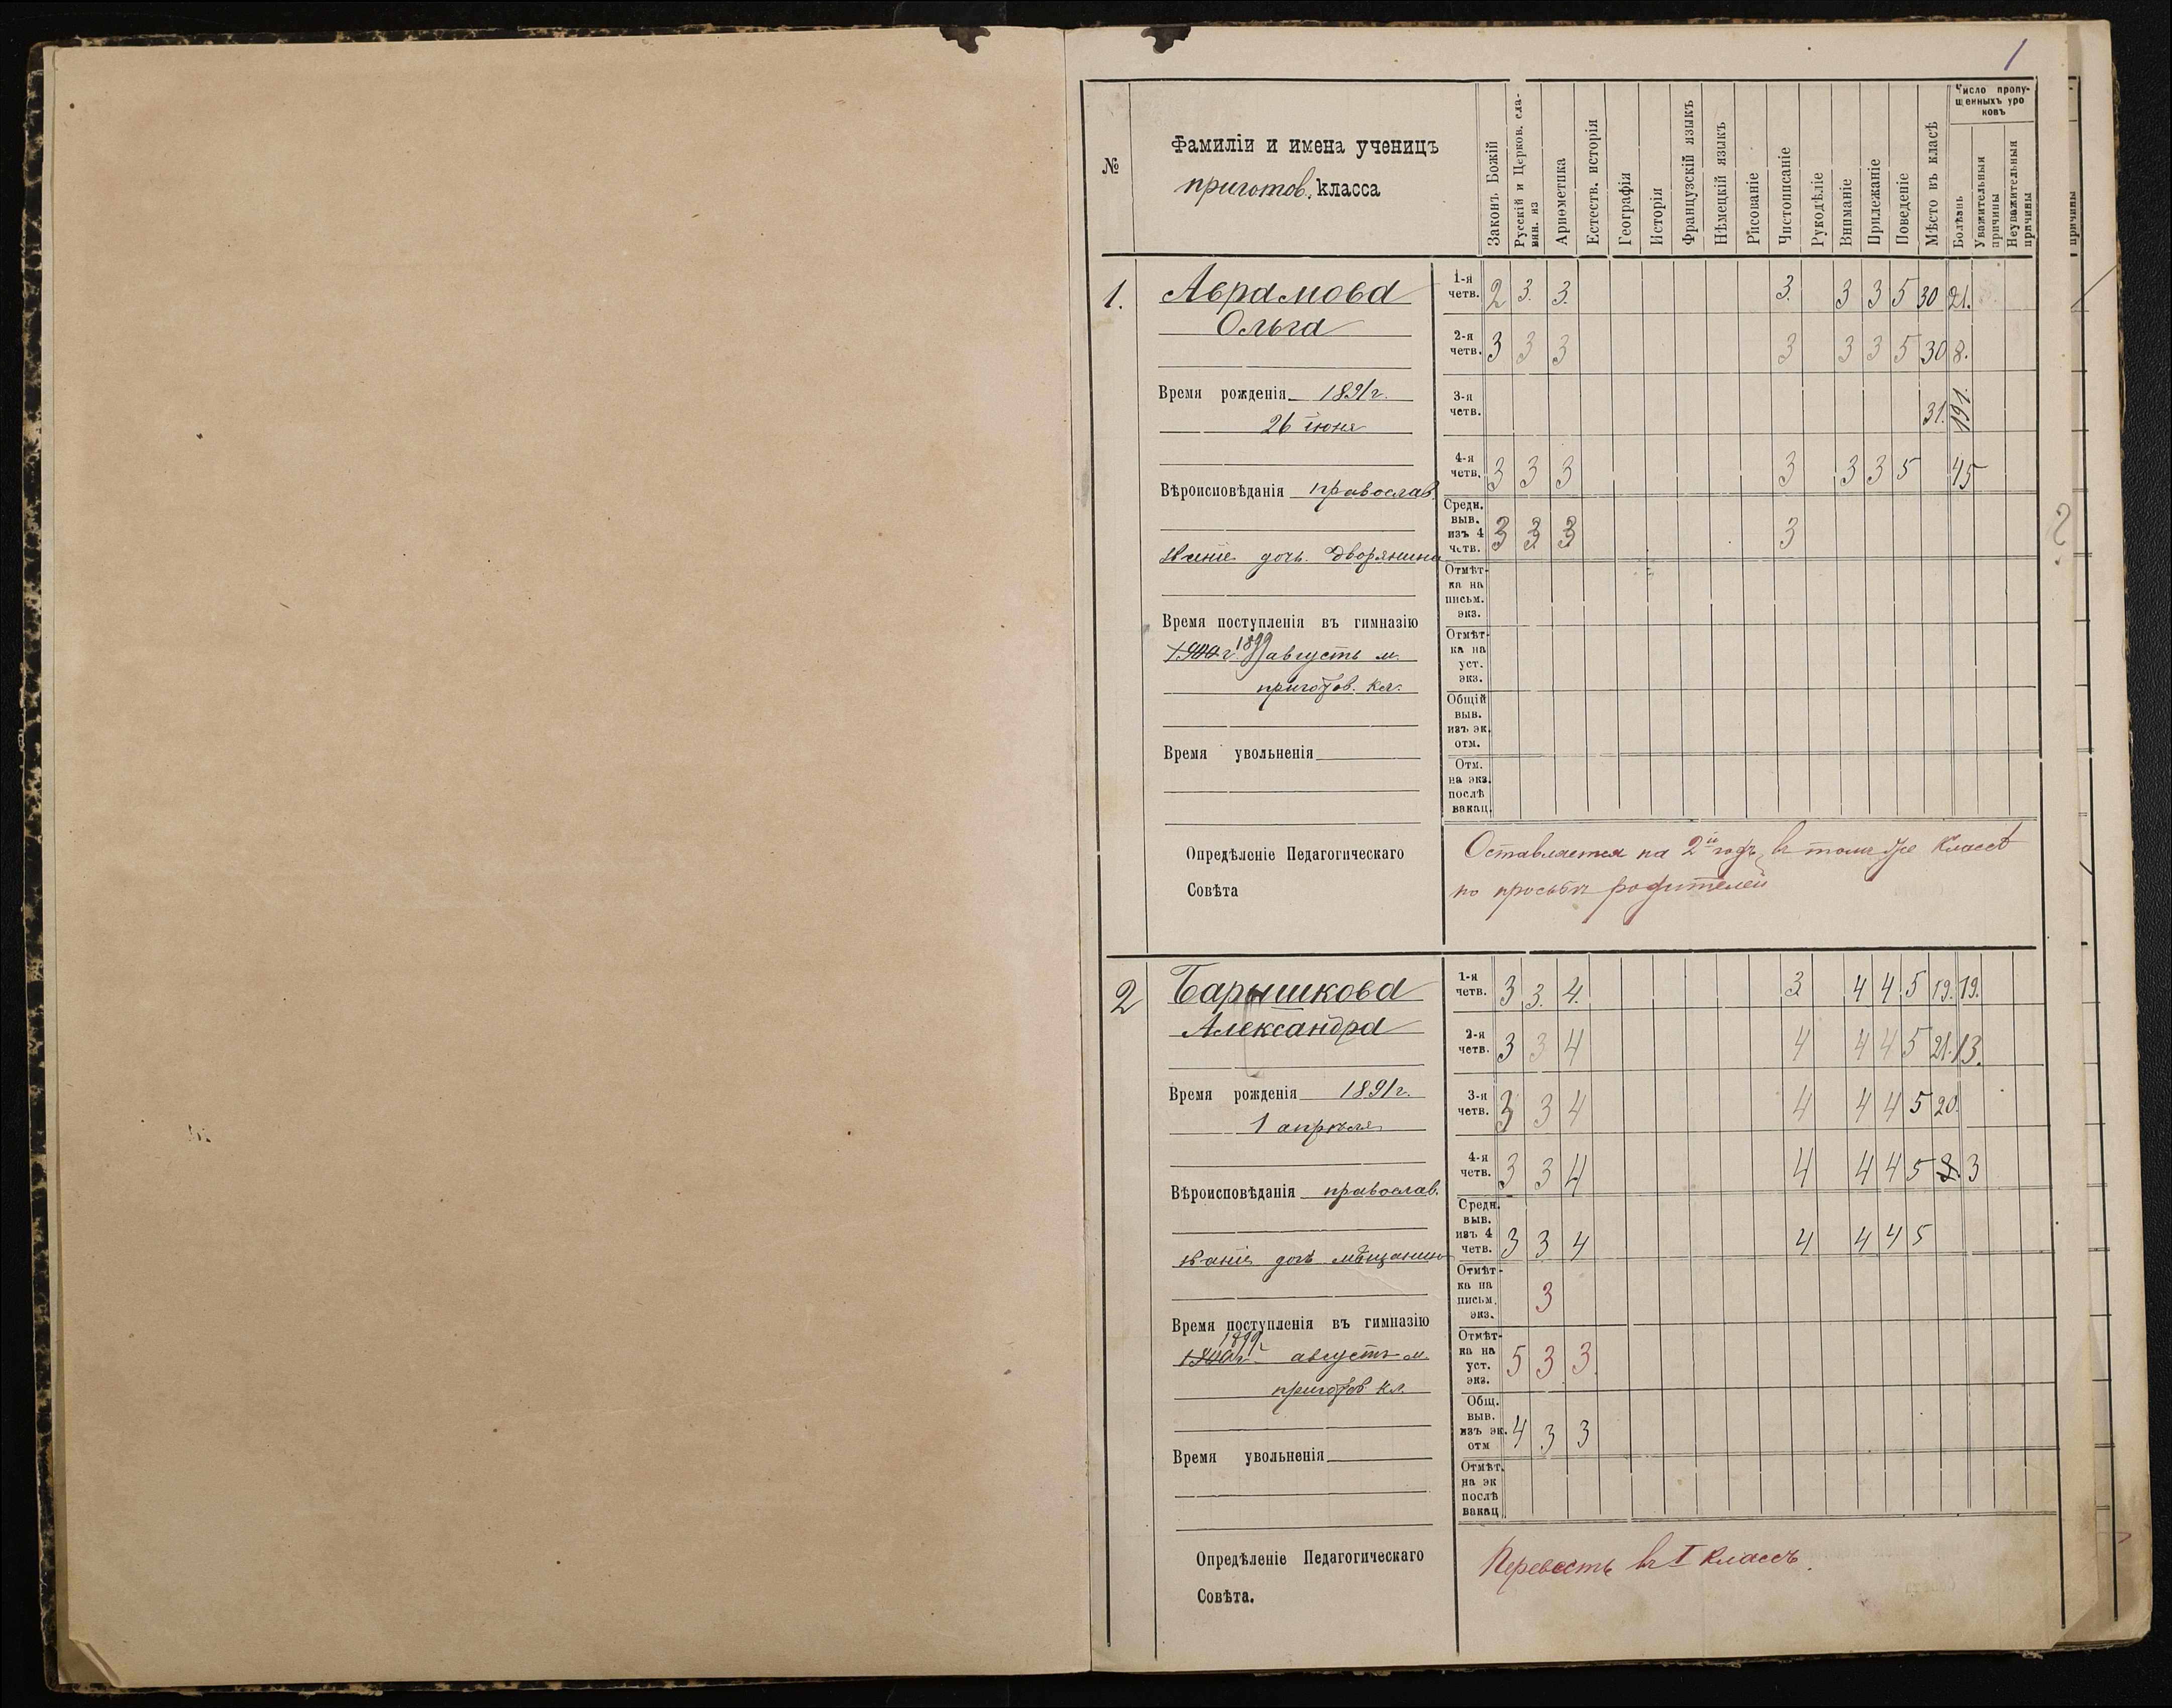 1
№
Фамиліи и имена ученицъ
приготов. класса
Законъ Божій
Русскій и Церков. сла-
вян. яз
Ариѳметика
Естеств. исторія
Географія
Исторія
Французскій языкъ
Нѣмецкій языкъ
Рисованіе
Чистописаніе
Рукодѣліе
Вниманіе
Прилежаніе
Поведеніе
Мѣсто въ класѣ
Число пропу-
щенныхъ уро
ковъ
Болѣзнь
Уважительныя
причины
Неуважительныя
причины
причины
1.
Аврамова
Ольга
Время рожденія 1891 г.
26 іюня
Вѣроисповѣданія православ.
званіе дочь дворянина
Время поступленія въ гимназію
1900 г. 1899 августъ м.
приготов. кл.
Время увольненія
1-я
четв. 2 3. 3. 3. 3 3 5 30 21.
2-я
четв. 3 3 3 3 3 3 5 30 8.
3-я
четв. 31. 191.
4-я
четв. 3 3 3 3 3 3 5 45
Средн.
выв.
изъ 4
четв. 3 3 3 3
Отмѣт-
ка на
письм.
экз.
Отмѣт-
ка на
уст.
экз.
Общій
выв.
изъ эк.
отм.
Отм.
на экз.
послѣ
вакац.
Опредѣленіе Педагогическаго
Совѣта
Оставляется на 2й годъ въ томъ же классѣ
по просьбѣ родителей
2
Барышкова
Александра
Время рожденія 1891 г.
1 апрѣля
Вѣроисповѣданія православ.
званіе дочь мѣщанина
Время поступленія въ гимназію
1899 г.
1900 г. августъ м.
приготов кл.
Время увольненія
1-я
четв. 3 3. 4. 3 4 4 5 19. 19.
2-я
четв. 3 3 4 4 4 4 5 21. 13.
3-я
четв. 3 3 4 4 4 4 5 20.
4-я
четв. 3 3 4 4 4 4 5 3
Средн.
выв.
изъ 4
четв. 3 3 4 4 4 4 5
Отмѣт-
ка на
письм.
экз. 3
Отмѣт-
ка на
уст.
экз. 5 3 3
Общ.
выв.
изъ эк.
отм 4 3 3
Отмѣт.
на эк
послѣ
вакац
Опредѣленіе Педагогическаго
Совѣта.
Перевесть въ I классъ.